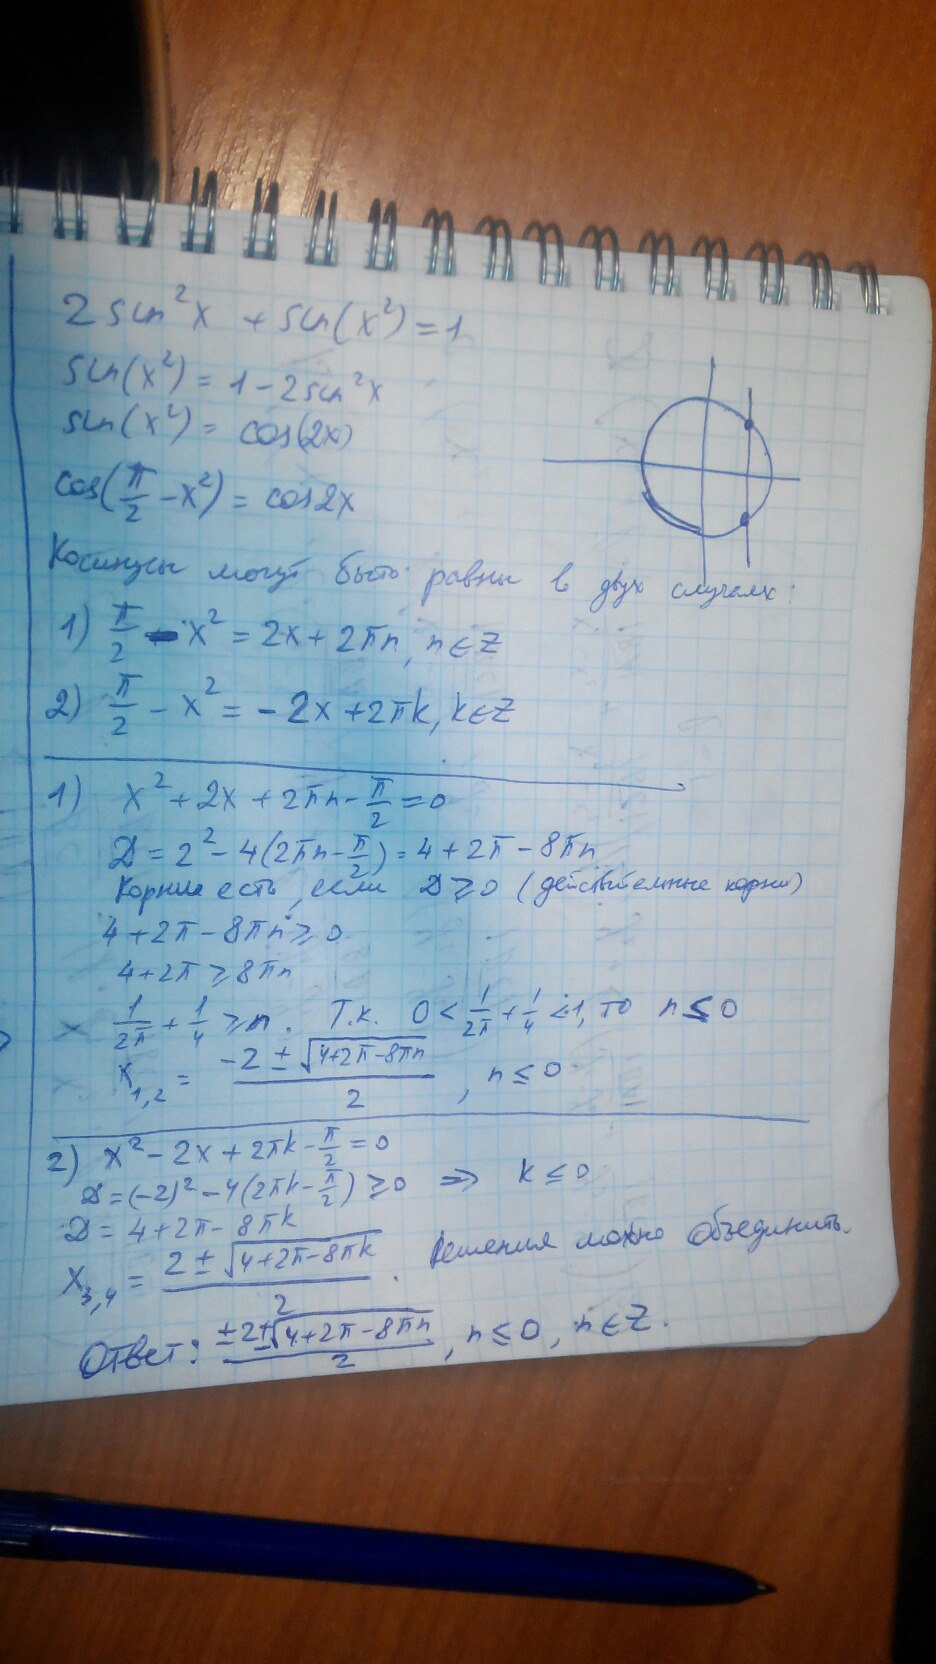 2 sin²x + sin(x²) = 1
sin(x²) = 1 - 2sin²x
sin(x²) = cos(2x)
cos(π/2 - x²) = cos2x
Косинусы могут быть равны в двух случаях:
1) π/2 - x² = 2x + 2πn, n∈Z
2) π/2 - x² = -2x + 2πk, k∈Z
1) x² + 2x + 2πn - π/2 = 0
D = 2² - 4(2πn - π/2) = 4 + 2π - 8πn
Корни есть, если D ≥ 0 (действительные корни)
4 + 2π - 8πn ≥ 0
4 + 2π ≥ 8πn
1/2π + 1/4 ≥ n. Т.к. 0 < 1/2π + 1/4 < 1, то n ≤ 0
x₁,₂ = (-2 ± √(4+2π-8πn))/2, n ≤ 0
2) x² - 2x + 2πk - π/2 = 0
D = (-2)² - 4(2πk - π/2) ≥ 0 ⇒ k ≤ 0
D = 4 + 2π - 8πk
x₃,₄ = (2 ± √(4+2π-8πk))/2. Решения можно объединить.
Ответ: (±2±√(4+2π-8πn))/2, n ≤ 0, n∈Z.